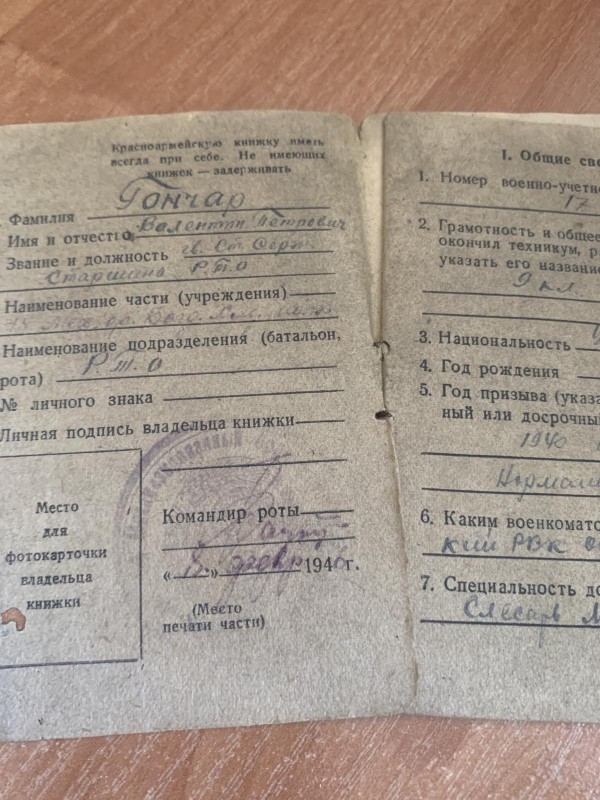 Красноармейскую книжку иметь
всегда при себе. Не имеющих
книжек — задерживать
Фамилия Гончар
Имя и отчество Валентин Петрович
Звание и должность гв. Ст. Серж.
Старшина РТО
Наименование части (учреждения)
Наименование подразделения (батальон,
рота) РТО
№ личного знака
Личная подпись владельца книжки
Место
для
фотокарточки
владельца
книжки
Командир роты
«8» февр 1946г.
(Место
печати части)
I. Общие све
1. Номер военно-учетно
17
2. Грамотность и общее
окончил техникум, р
указать его название
9 кл.
3. Национальность
4. Год рождения
5. Год призыва (указа
ный или досрочный
1940
Нормаль
6. Каким военкомато
кий РВК
7. Специальность до
Слесарь М